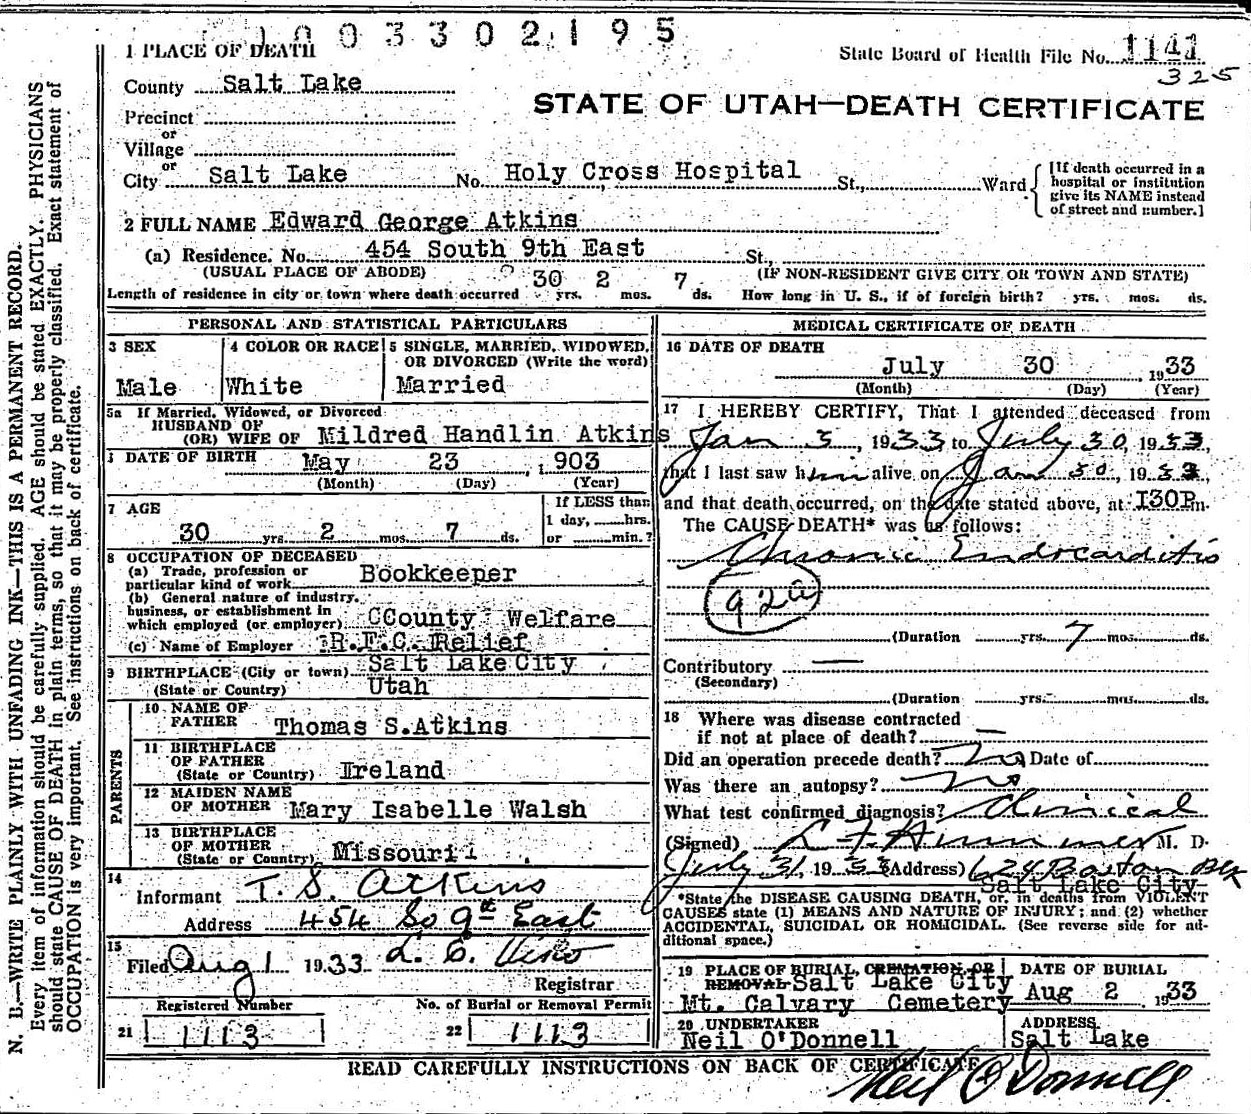 1003302195
1 PLACE OF DEATH
State Board of Health File No. 1141
325
County Salt Lake
STATE OF UTAH—DEATH CERTIFICATE
Precinct
or
Village
or
City Salt Lake No. Holy Cross Hospital St., Ward
[If death occurred in a
hospital or institution
give its NAME instead
of street and number.]
2 FULL NAME Edward George Atkins
(a) Residence. No. 454 South 9th East St.,
(USUAL PLACE OF ABODE) (IF NON-RESIDENT GIVE CITY OR TOWN AND STATE)
Length of residence in city or town where death occurred 30 yrs. 2 mos. 7 ds. How long in U. S., if of foreign birth? yrs. mos. ds.
PERSONAL AND STATISTICAL PARTICULARS
3 SEX
Male
4 COLOR OR RACE
White
5 SINGLE, MARRIED, WIDOWED,
OR DIVORCED (Write the word)
Married
5a If Married, Widowed, or Divorced
HUSBAND OF
(OR) WIFE OF Mildred Handlin Atkins
DATE OF BIRTH May 23 , 1903
(Month) (Day) (Year)
7 AGE
30 yrs. 2 mos. 7 ds.
If LESS than
1 day, hrs.
or min.?
8 OCCUPATION OF DECEASED
(a) Trade, profession or
particular kind of work Bookkeeper
(b) General nature of industry,
business, or establishment in
which employed (or employer) CCounty Welfare
(c) Name of Employer R.F.C. Relief
9 BIRTHPLACE (City or town) Salt Lake City
(State or Country) Utah
PARENTS
10 NAME OF
FATHER Thomas S.Atkins
11 BIRTHPLACE
OF FATHER
(State or Country) Ireland
12 MAIDEN NAME
OF MOTHER Mary Isabelle Walsh
13 BIRTHPLACE
OF MOTHER
(State or Country) Missouri
14
Informant T. S. Atkins
Address 454 So 9th East
15
Filed Aug 1 1933 L. C.
Registrar
Registered Number
21 1113
No. of Burial or Removal Permit
22 1113
MEDICAL CERTIFICATE OF DEATH
16 DATE OF DEATH
July 30 , 1933
(Month) (Day) (Year)
17 I HEREBY CERTIFY, That I attended deceased from
Jan 3, 1933 to July 30, 1933,
that I last saw him alive on Jan 30, 1933,
and that death occurred, on the date stated above, at I30P m.
The CAUSE DEATH* was as follows:
Chronic Endocarditis
92a
(Duration yrs. 7 mos. ds.
Contributory —
(Secondary)
(Duration yrs. mos. ds.
18 Where was disease contracted
if not at place of death? —
Did an operation precede death? No Date of
Was there an autopsy? no
What test confirmed diagnosis? Clinical
(Signed) L F Hummer M. D.
July 31, 1933 (Address) 624 Boston Blk
Salt Lake City
*State the DISEASE CAUSING DEATH, or, in deaths from VIOLENT
CAUSES state (1) MEANS AND NATURE OF INJURY; and (2) whether
ACCIDENTAL, SUICIDAL OR HOMICIDAL. (See reverse side for ad-
ditional space.)
19 PLACE OF BURIAL, CREMATION, OR
REMOVAL Salt Lake City
Mt. Calvary Cemetery
DATE OF BURIAL
Aug 2 , 1933
20 UNDERTAKER
Neil O'Donnell
ADDRESS
Salt Lake
READ CAREFULLY INSTRUCTIONS ON BACK OF CERTIFICATE
Neil O'Donnell
N. B.—WRITE PLAINLY WITH UNFADING INK—THIS IS A PERMANENT RECORD.
Every item of information should be carefully supplied. AGE should be stated EXACTLY. PHYSICIANS
should state CAUSE OF DEATH in plain terms, so that it may be properly classified. Exact statement of
OCCUPATION is very important. See instructions on back of certificate.